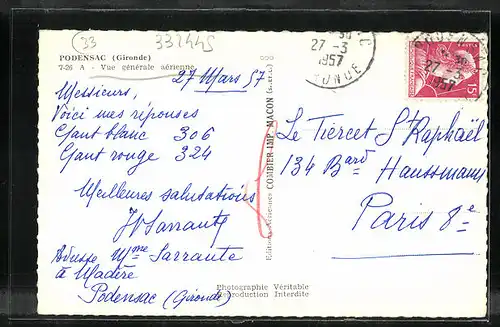 33
332445
PODENSAC (Gironde)
7-26 A - Vue générale aérienne
27 Mars 57
Messieurs,
Voici mes réponses
Gant blanc 306
Gant rouge 324
Meilleures salutations
Adresse Mme Sarrante
à Madère
Podensac (Gironde)
Editions Aériennes COMBIER IMP. MACON
Photographie Véritable
Reproduction Interdite
27-3
1957
GIRONDE
PODENSAC
27-3
1957
15F
Le Tiercet St Raphaël
134 Bard Haussmann
Paris 8e